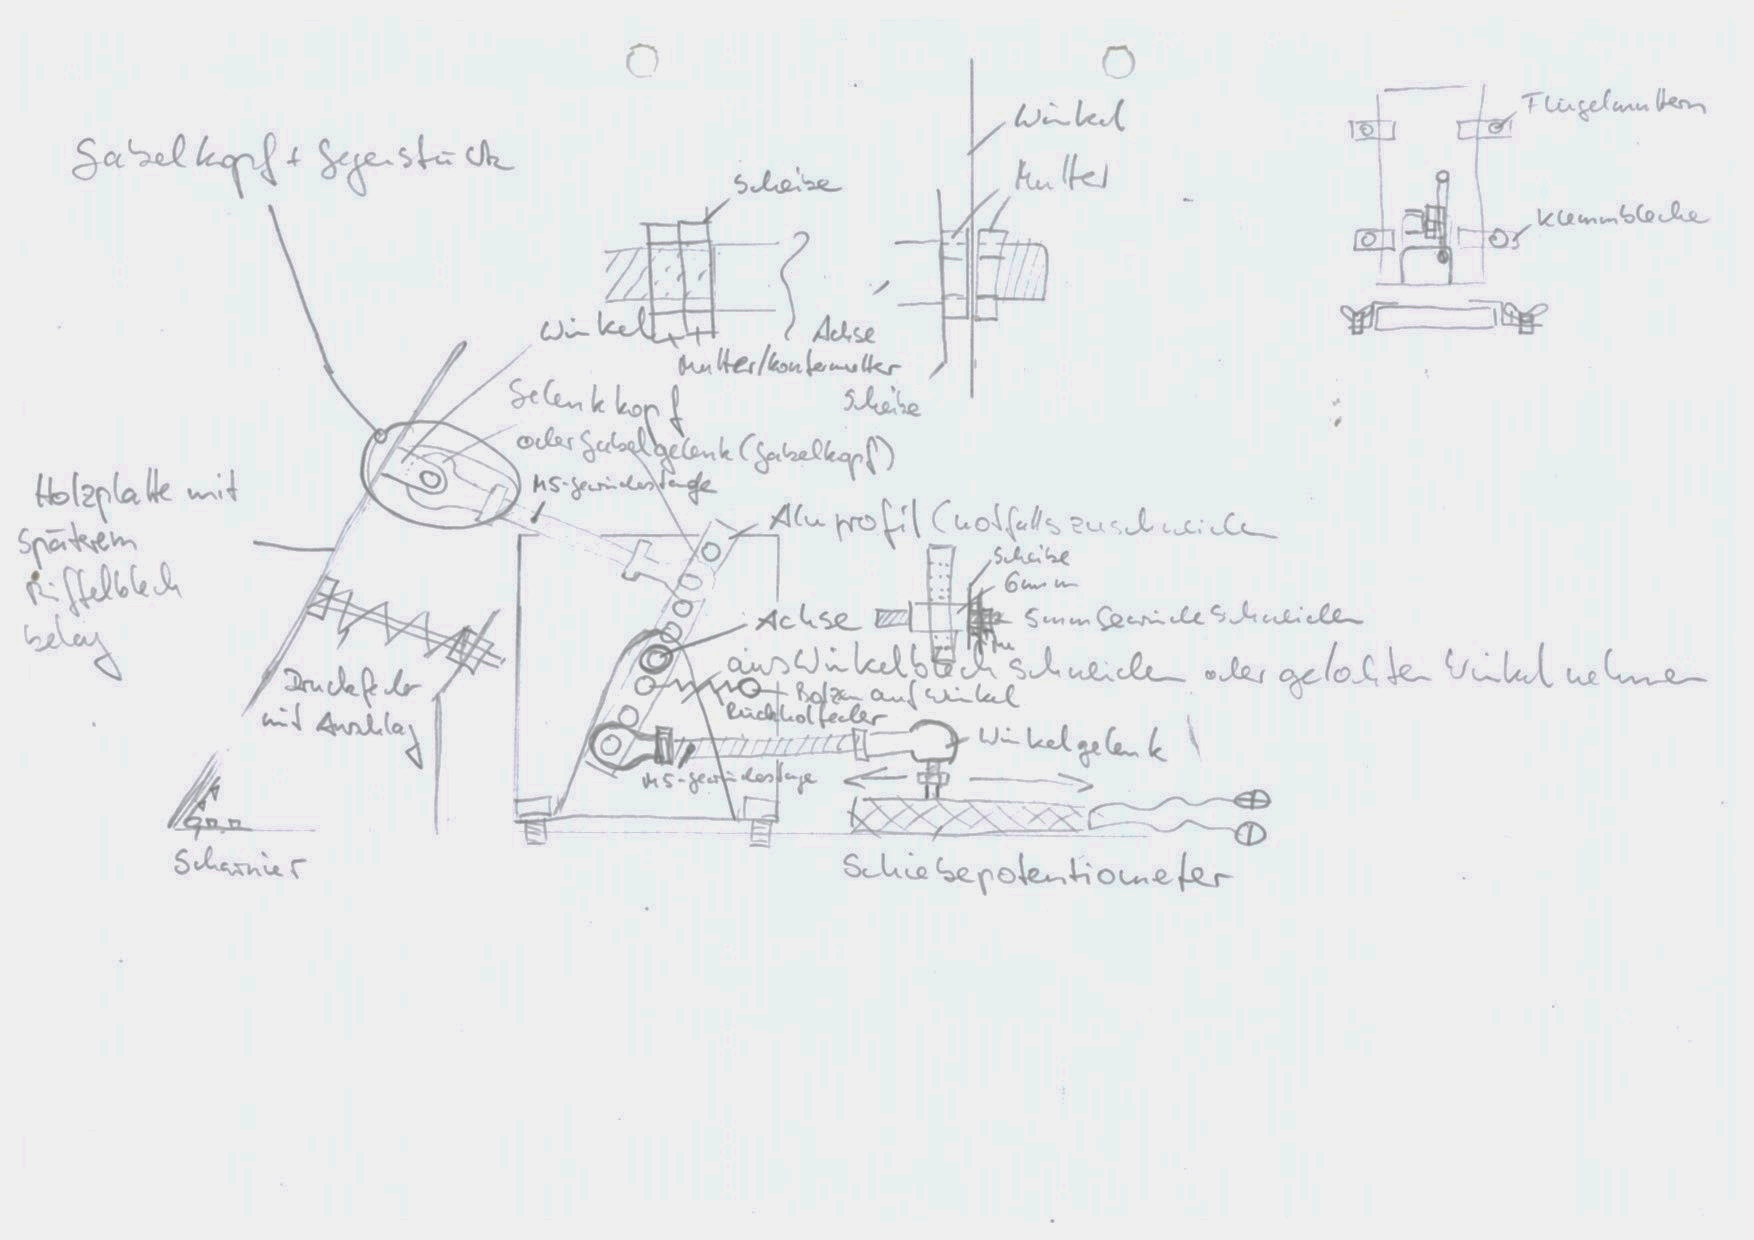 Gabelkopf + Gegenstück
Scheibe
Winkel
Mutter
Winkel
Achse
Mutter/Kontermutter
Scheibe
Flügelmuttern
Klemmbleche
Gelenkkopf
oder Gabelgelenk (Gabelkopf)
M5-Gewindestange
Holzplatte mit
späterem
Riffelblech
belag
Aluprofil (notfalls zuschneiden
Scheibe
6mm
Achse
5mm Gewinde schneiden
aus Winkelblech schneiden oder gelochten Winkel nehmen
Bolzen auf Winkel
Rückholfeder
Druckfeder
mit Anschlag
Winkelgelenk
M5-Gewindestange
Scharnier
Schiebepotentiometer